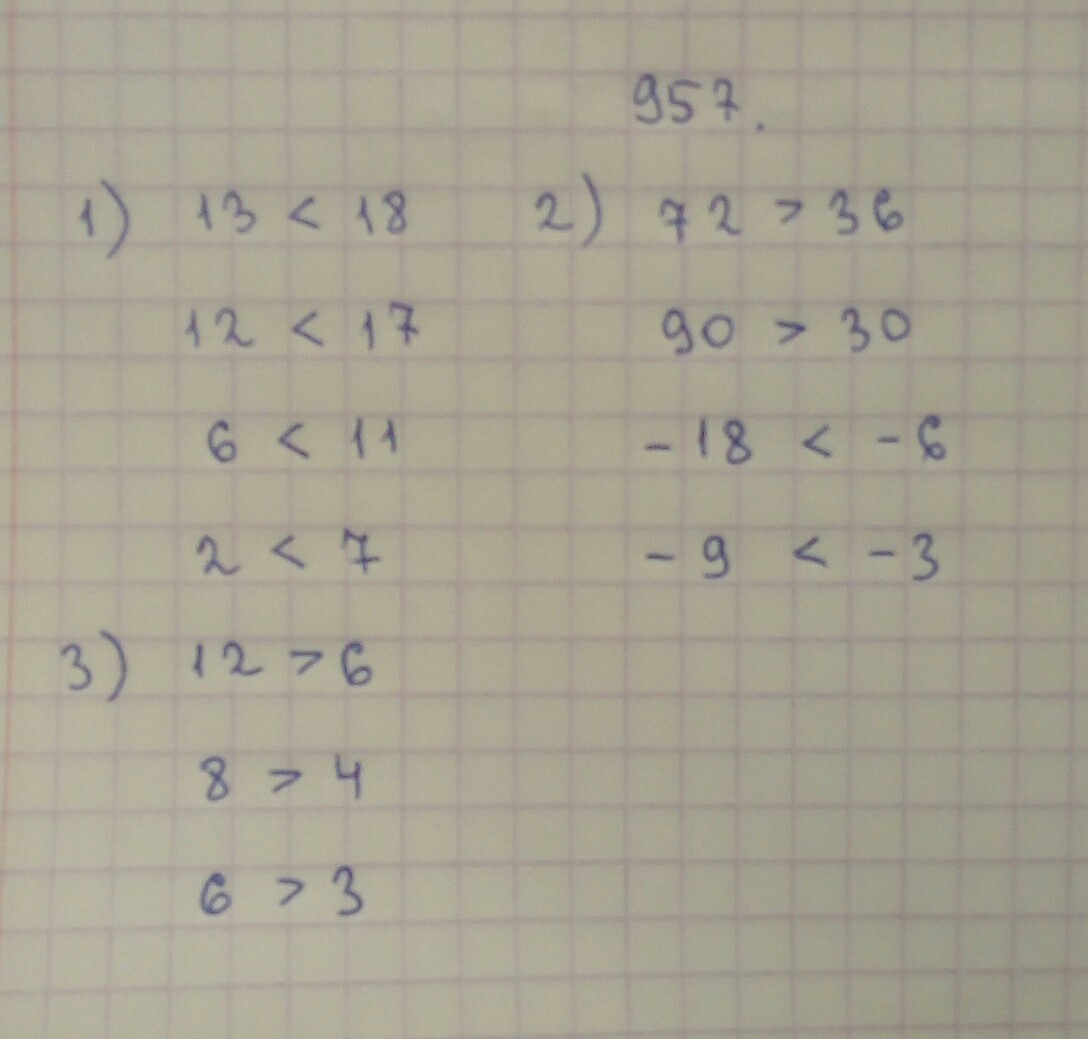 957.
1) 13 < 18 2) 72 > 36
12 < 17 90 > 30
6 < 11 - 18 < - 6
2 < 7 - 9 < - 3
3) 12 > 6
8 > 4
6 > 3